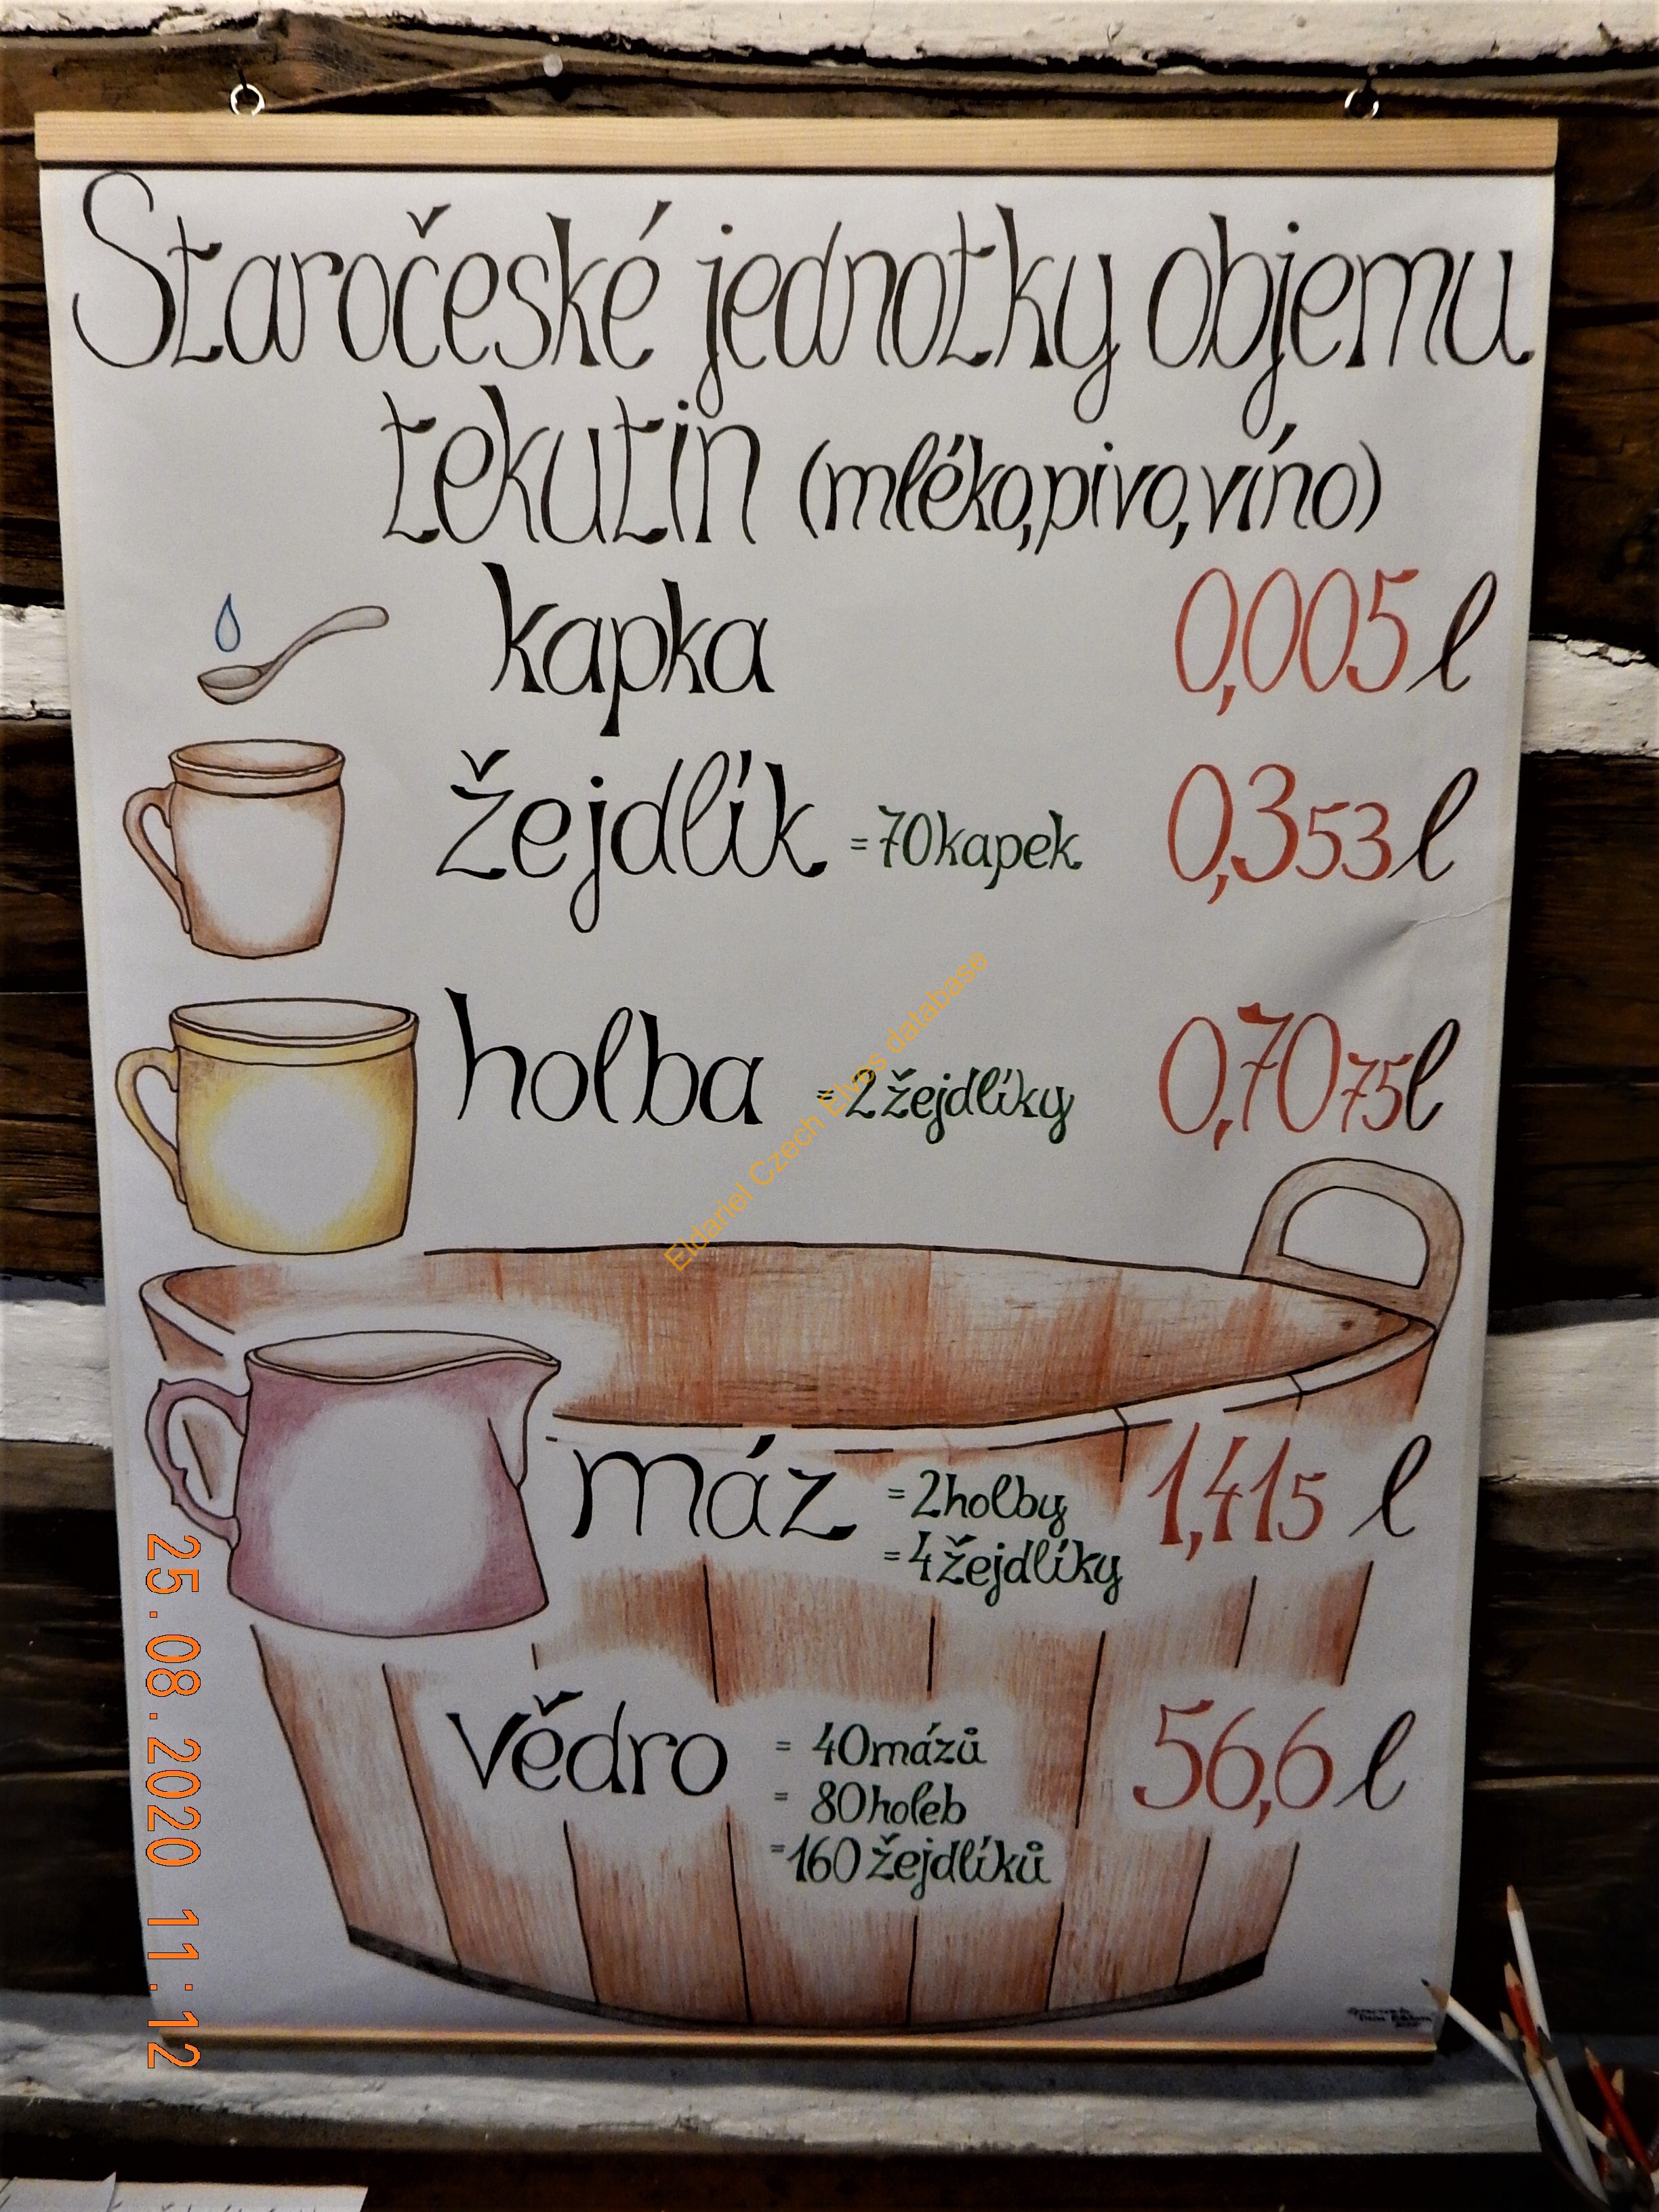 Staročeské jednotky objemu
tekutin (mléko,pivo,víno)
kapka 0,005 l
žejdlík =70kapek 0,353 l
holba =2žejdlíky 0,7075l
máz =2holby 1,415 l
=4žejdlíky
Vědro = 40mázů 56,6 l
= 80holeb
=160žejdlíků
Eldariel Czech Elves database
25.08.2020 11:12